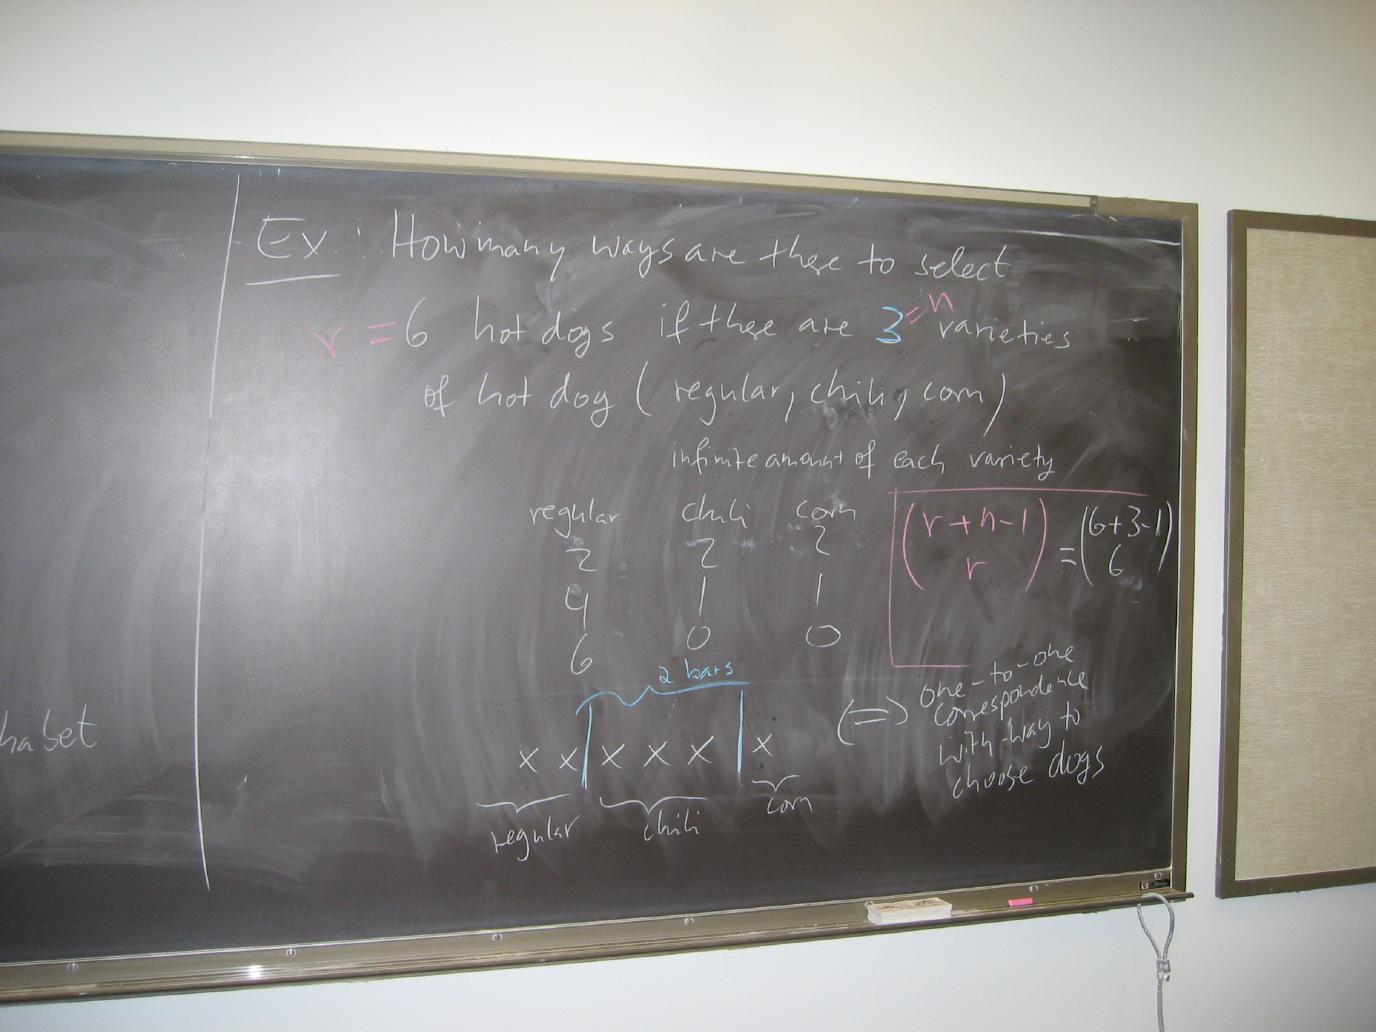 Ex: How many ways are there to select
r = 6 hot dogs if there are 3 = n varieties
of hot dog (regular, chili, corn)
infinite amount of each variety
regular chili corn
2 2 2
4 1 1
6 0 0
(r+n-1
r) = (6+3-1
6)
2 bars
x x | x x x | x
regular chili corn
(=) one-to-one
correspondence
with way to
choose dogs
habet